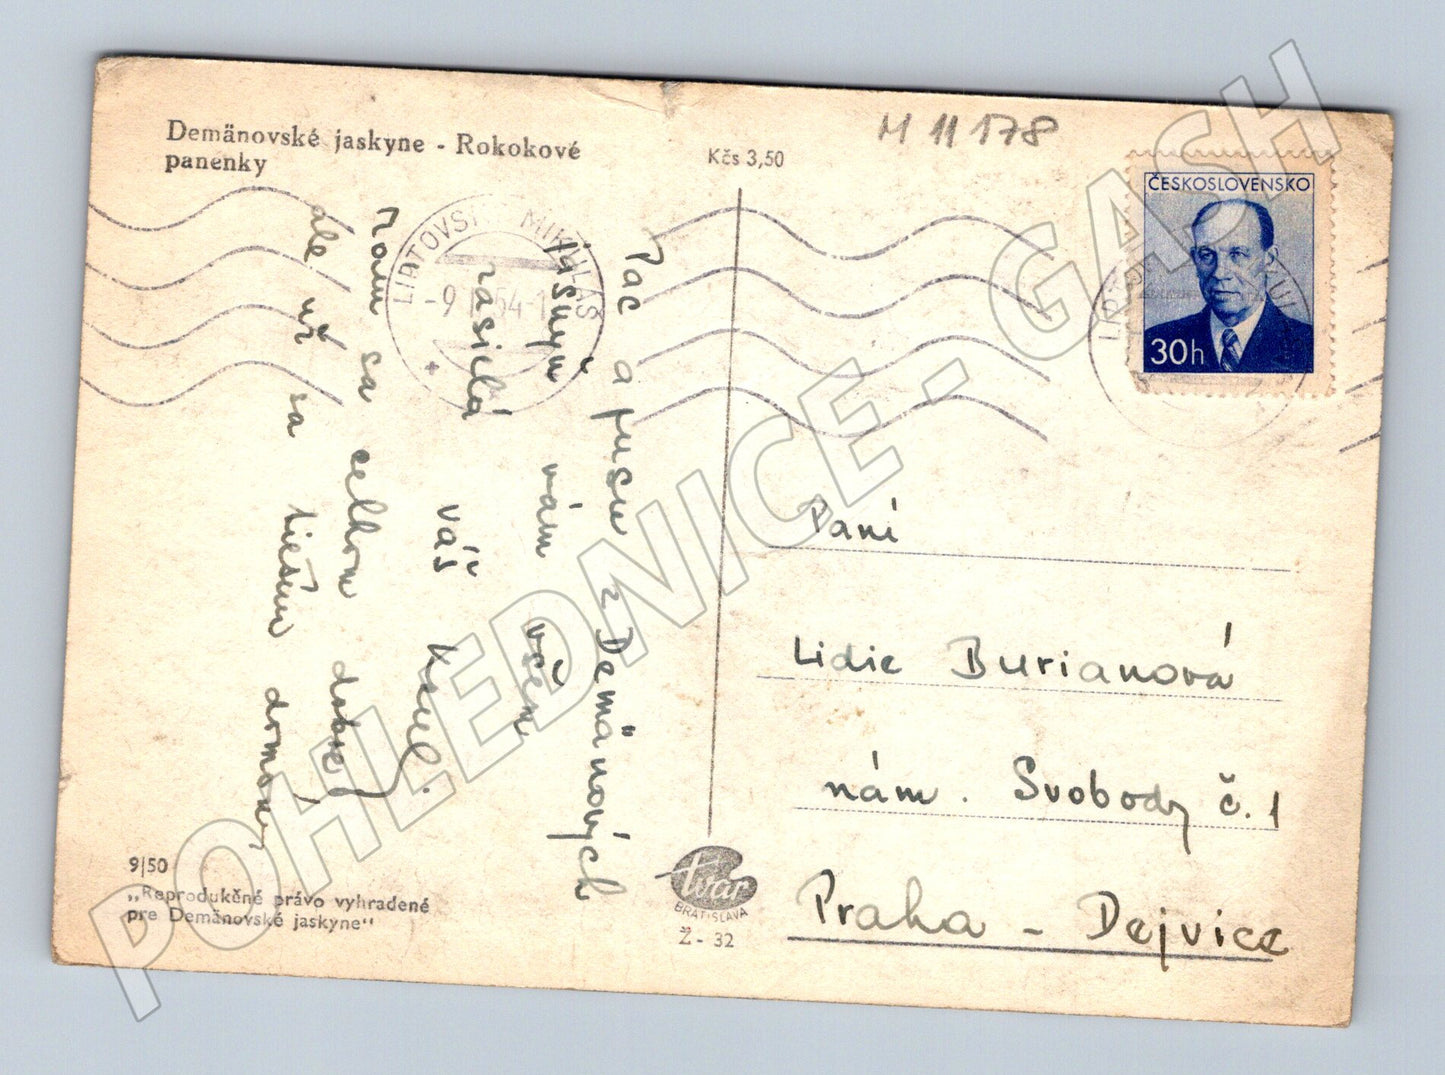 Demänovské jaskyne - Rokokové
panenky
Kčs 3,50
M 11 178
ČESKOSLOVENSKO
30h
LIPTOVSKÝ MIKULÁŠ
Pac a pusu z Demänových
jaskyň vám všem
zasielá
váš Karel.
Mám sa celkom dobre
ale už sa tiešim domov,
Paní
Lidie Burianová
nám. Svobody č. 1
Praha - Dejvice
9/50
„Reprodukčné právo vyhradené
pre Demänovské jaskyne"
tvar
BRATISLAVA
Ž - 32
POHLEDNICE - GASH